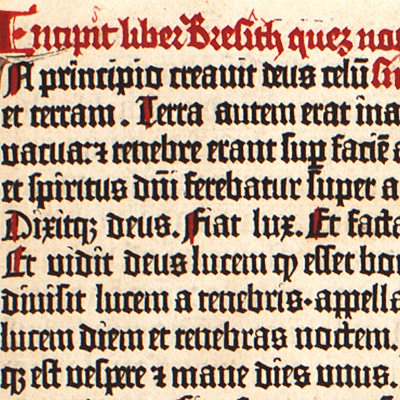 Incipit liber Bresith quez nos
In principio creavit deus celū
et terram. Terra autem erat ina
vacua: ⁊ tenebre erant sup faciē
et spiritus dn̄i ferebatur super a
Dixitqz deus. Fiat lux. Et facta
Et vidit deus lucem qz esset bon
divisit lucem a tenebris· appella
lucem diem et tenebras noctem.
qz est vespere ⁊ mane dies unus.